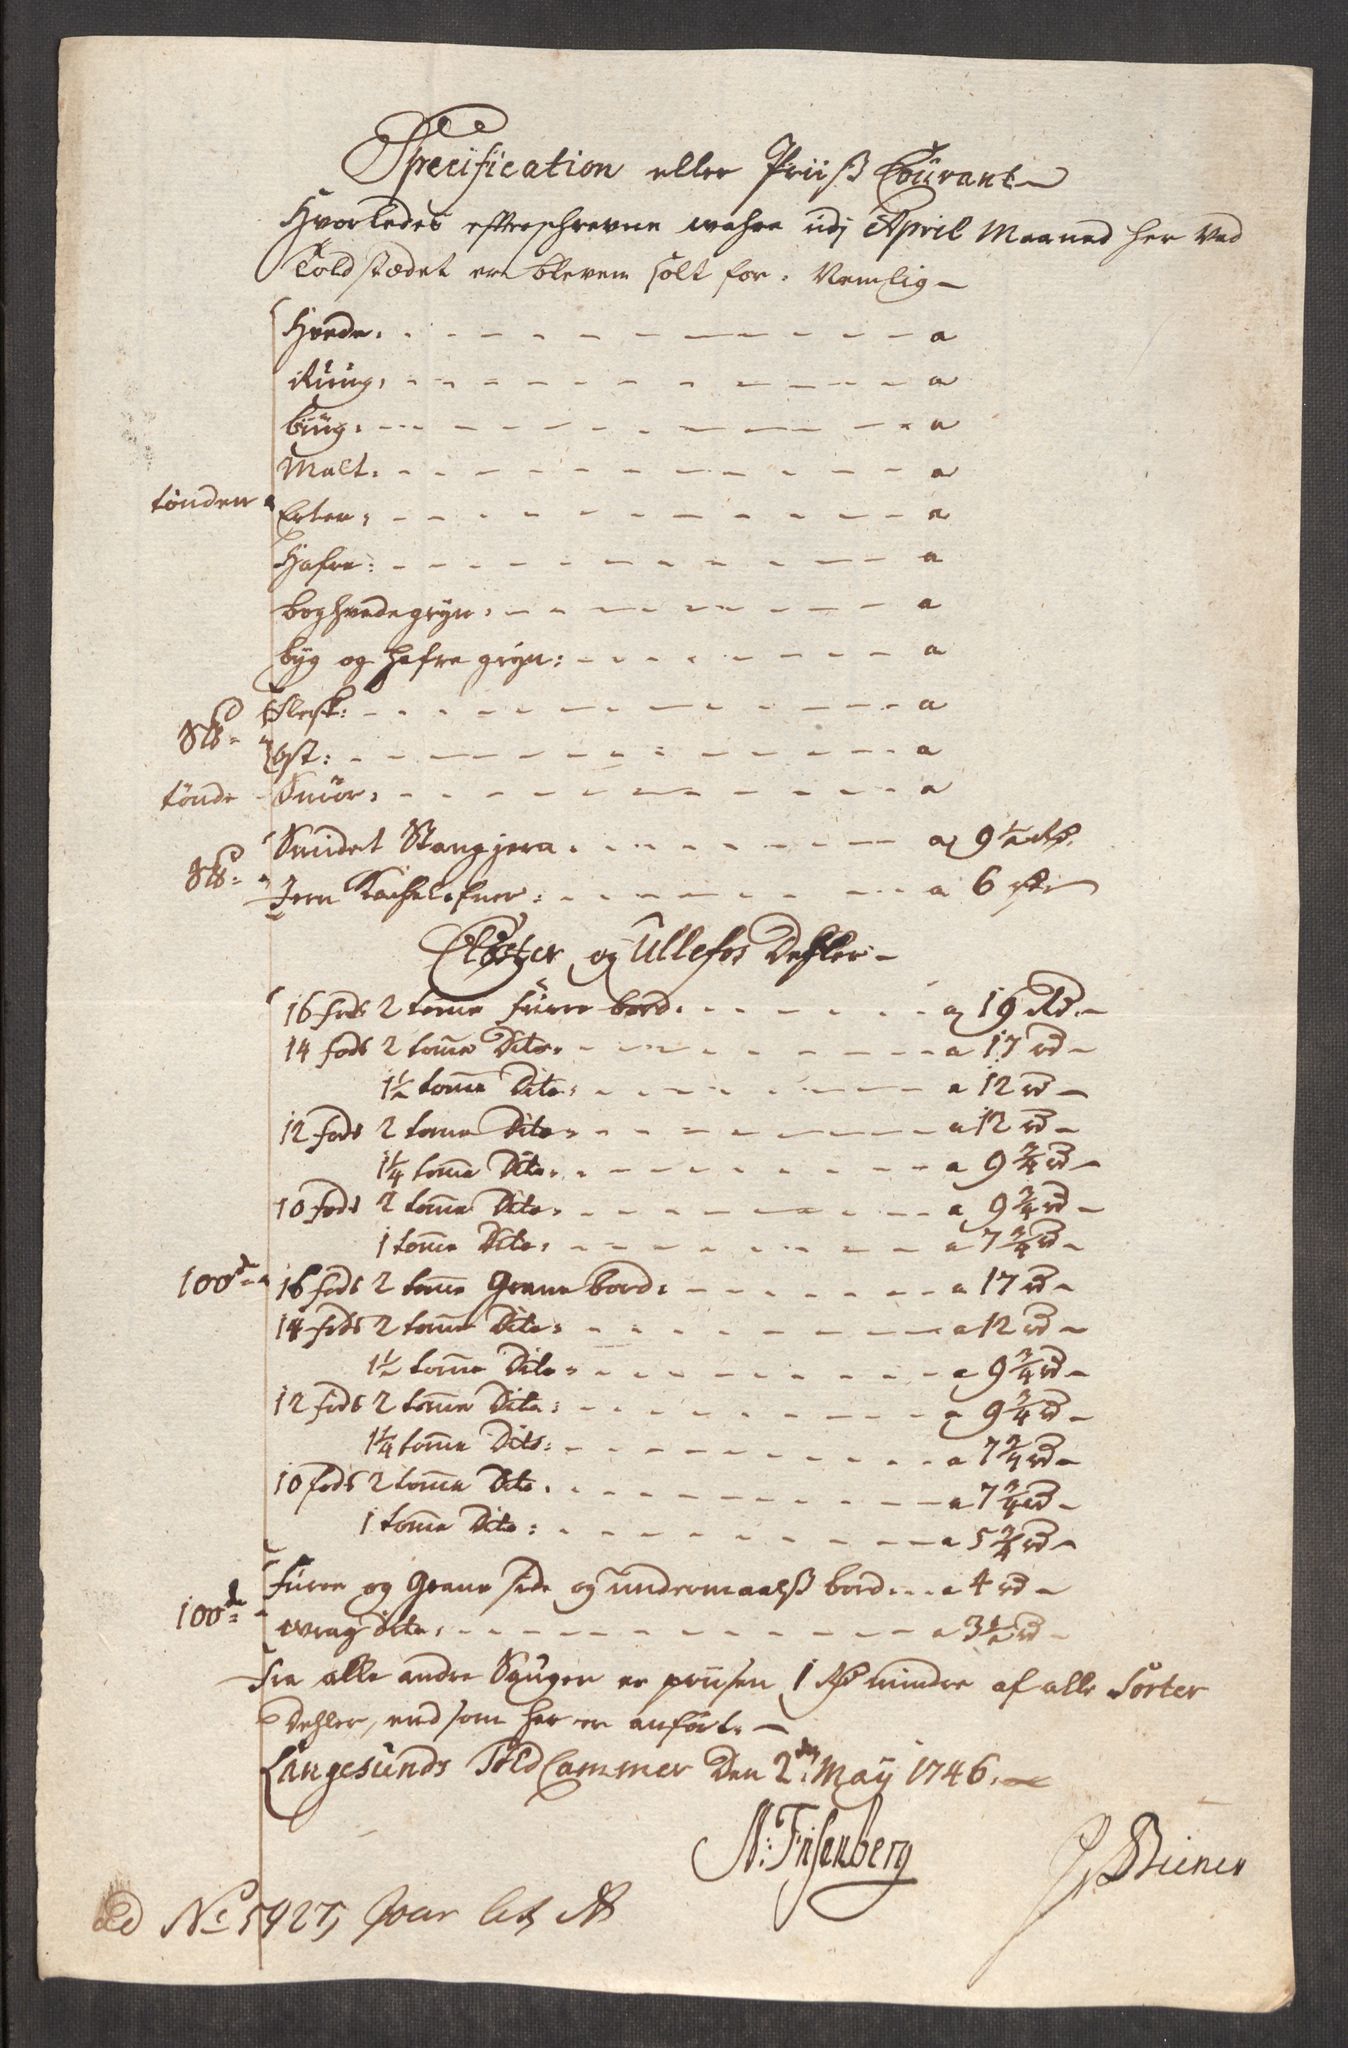 Specification eller Priiß Courant
Hvorledes efterschrevne wahre udj April Maaned her ved
Toldstædet ere bleven solt for. Nemlig
Hvede. a
Rüug. a
Büug. a
Malt. a
tønden
Erter. a
Hafre: a
boghvedegryn. a
byg og Hafre gryn: a
Flesk: a
Ost: a
tønde Smör. a
Smidet Stangjern. a 9½ Rd.
Jern Kachelofner: a 6
Closter og Ullefos Dehler
16 fods 2 tome fürre bord. a 19 Rd.
14 fods 2 tomme Dito. a 17 rd
1½ tomme Dito. a 12 rd
12 fods 2 tome Dito a 12 rd
1¼ tomme Dito. a 9¾ rd
10 fods 2 tomme Dito. a 9¾ rd
1 tomme Dito. a 7¾ rd
100de 16 fods 2 tomme Grane bord: a 17 rd
14 fods 2 tomme Dito: a 12 rd
1½ tomme Dito a 9¾ rd
12 fods 2 tomme Dito: a 9¾ rd
1¼ tomme Dito: a 7¾ rd
10 fods 2 tomme Dito. a 7¾ rd
1 tomme Dito: a 5¾ rd
Fürre og Grane side og undermaalß bord. a 4 rd
100de
wrag dito. a 3½ rd
Fra alle andre Sauger er priisen 1 Rd mindre af alle Sorter
Dehler, end som her er anført.
Langesunds Told Cammer Den 2den May 1746.
N: Frisenberg
Biener
No 5927